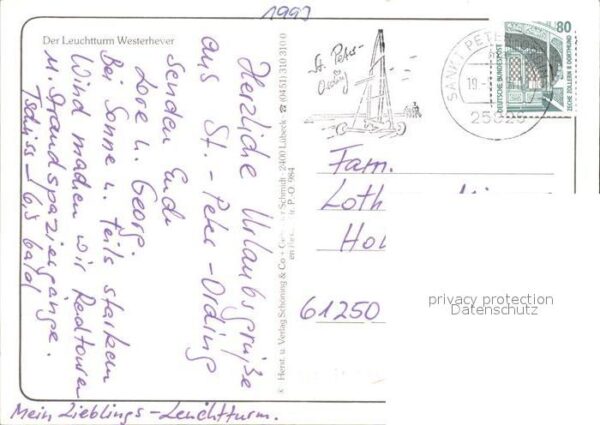 1997
Der Leuchtturm Westerhever
Herzliche Urlaubsgrüße
aus St.-Peter-Ording
senden Euch
Lore u. Georg.
Bei Sonne u. teils starkem
Wind machen wir Radtouren
u. Strandspaziergänge.
Tschüss - bis bald
Mein Lieblings-Leuchtturm.
Herst. u. Verlag Schöning & Co + Schmidt · 2400 Lübeck · ☎ (0451) 310 310
St. Peter-
Ording
SANKT PETER
19.
25826
80
DEUTSCHE BUNDESPOST
ZECHE ZOLLERN II DORTMUND
Fam.
Loth
Ho
61250
privacy protection
Datenschutz